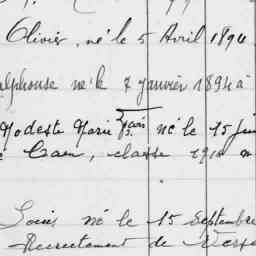 Olivier, né le 5 Avril 1894
Alphonse né le 7 Janvier 1894 à
Modeste Marie né le 15 Jui
Caen, classe 1914
Louis né le 15 Septembre
Recrutement de